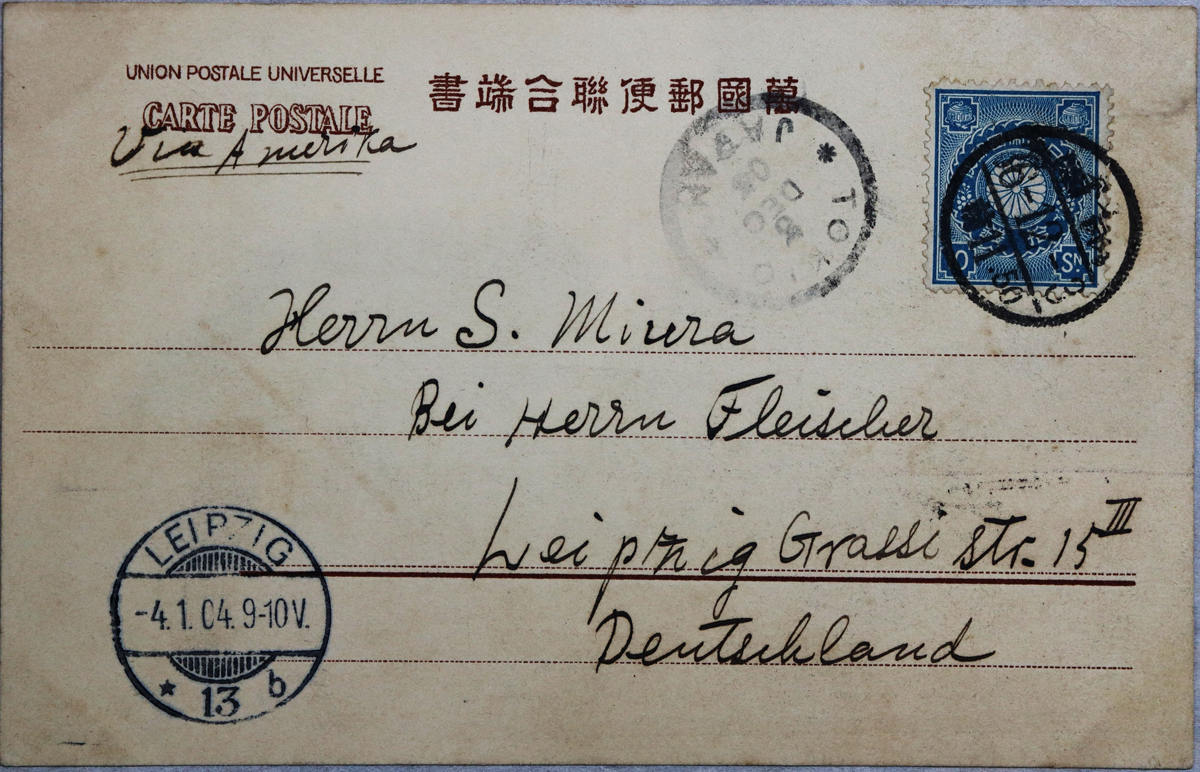 UNION POSTALE UNIVERSELLE
萬國郵便聯合端書
CARTE POSTALE
Via Amerika
TOKIO JAPAN
DEC
SN.
Herrn S. Miura
Bei Herrn Fleischer
Leipzig Grassi str. 15 III
Deutschland
LEIPZIG
-4.1.04.9-10V.
* 13 b